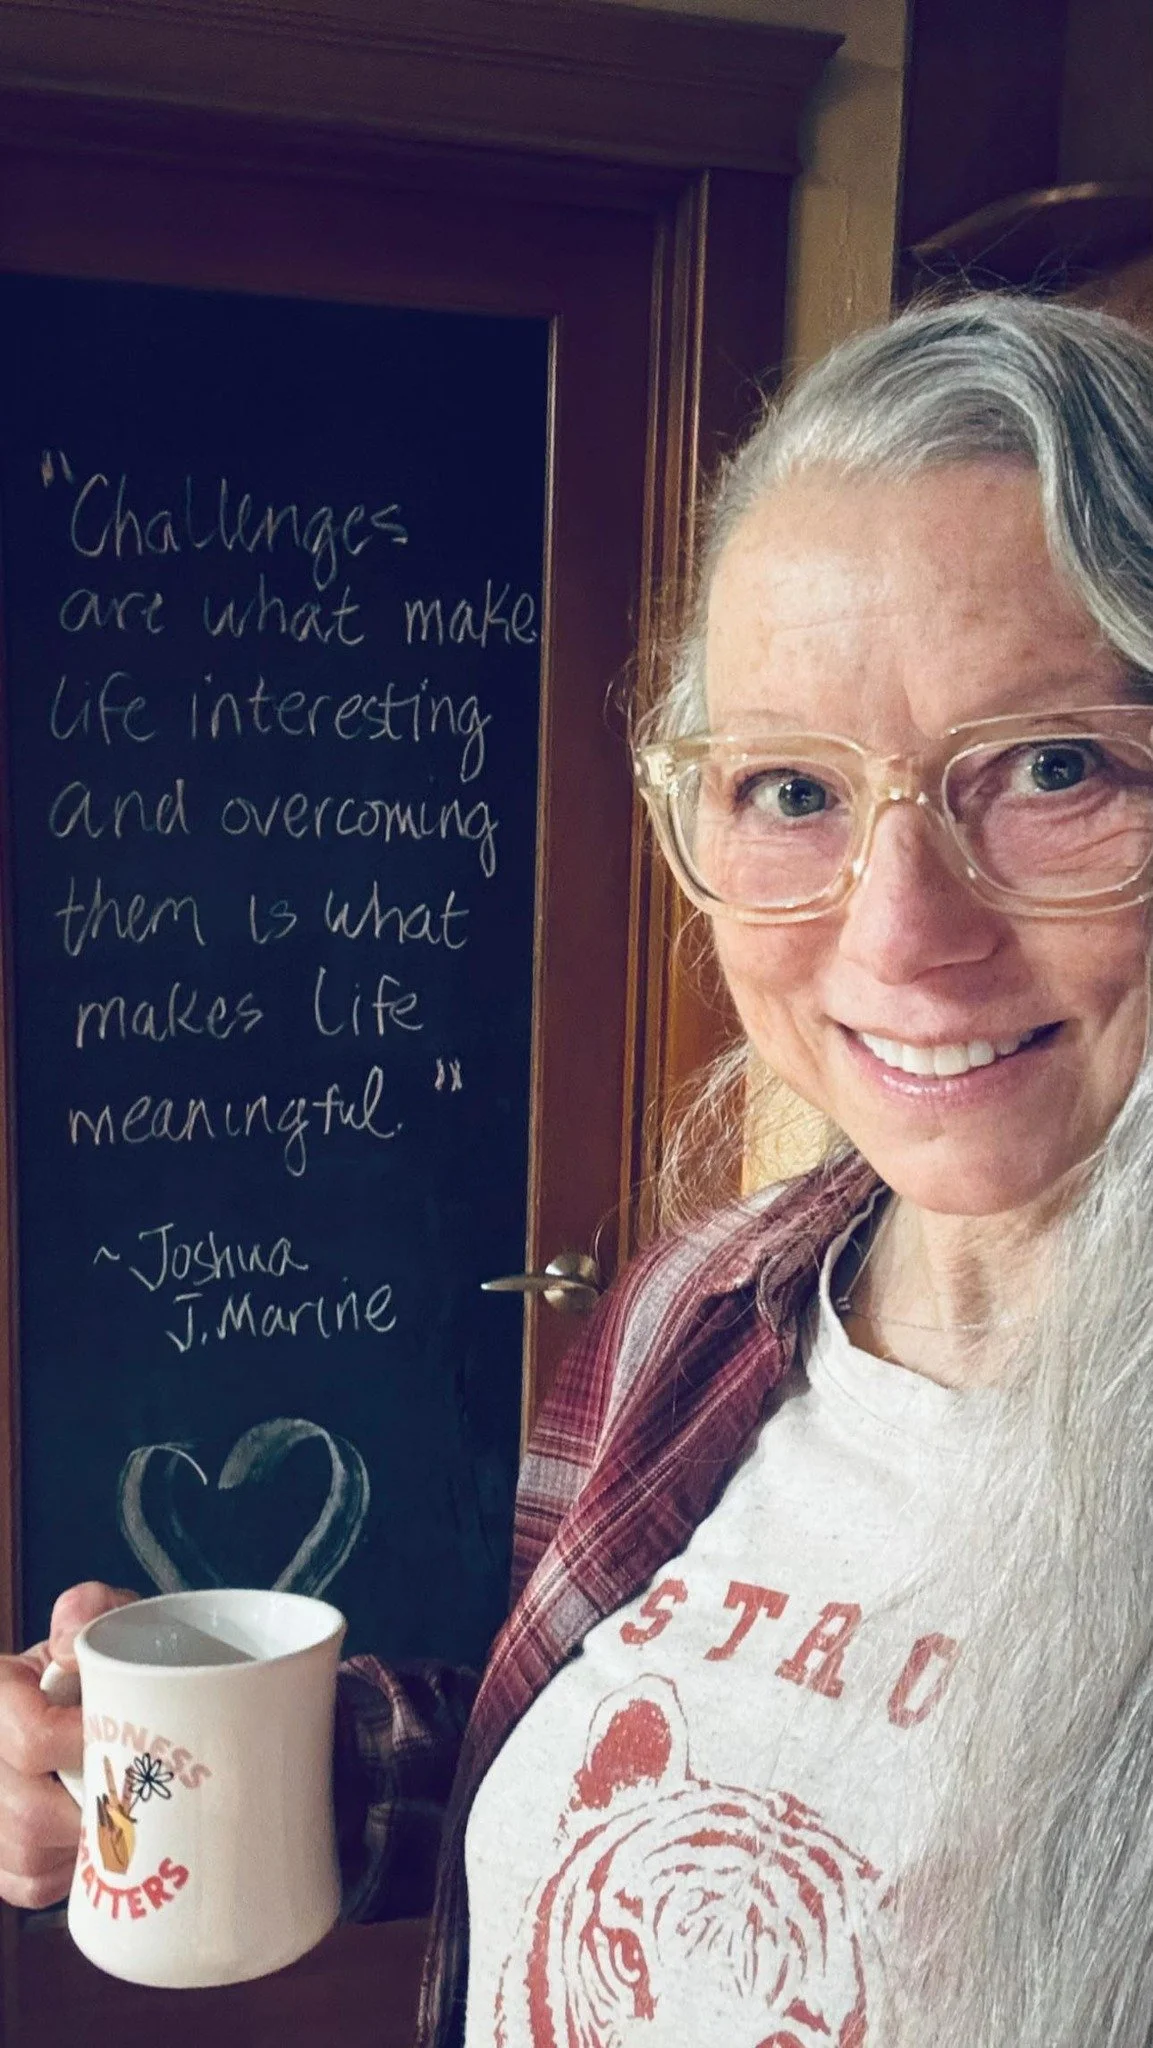 "Challenges
are what make
life interesting
and overcoming
them is what
makes life
meaningful."
~ Joshua
J. Marine
STRO